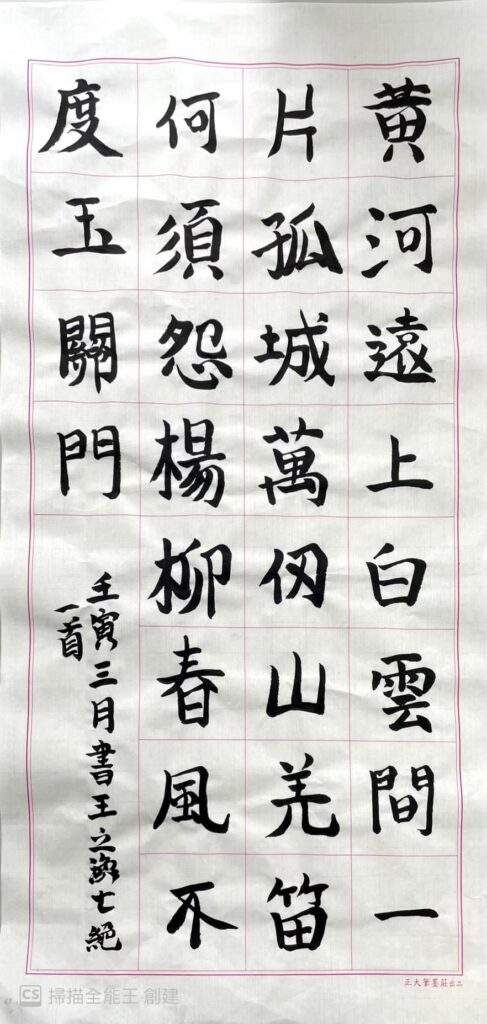 黃河遠上白雲間一
片孤城萬仞山羌笛
何須怨楊柳春風不
度玉關門
壬寅三月書王之渙七絕
一首
正大筆墨莊出品
CS 掃描全能王 創建